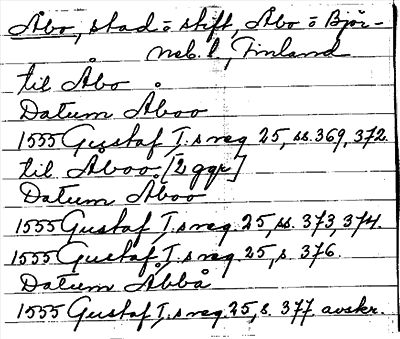 Åbo, stad o stift, Åbo o Björ-
neb. l., Finland
til Åbo
Datum Åboo
1555 Gustaf I:s reg 25, ss. 369, 372.
til Åboo [2 ggr]
Datum Åboo
1555 Gustaf I:s reg. 25, ss. 373, 374.
1555 Gustaf I:s reg. 25, s. 376.
Datum Åbbå
1555 Gustaf I:s reg. 25, s. 377 avskr.